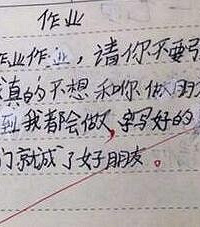 作业
作业作业,请你不要引
真的不想和你做朋
到我都会做,字写好的
们就成了好朋友。